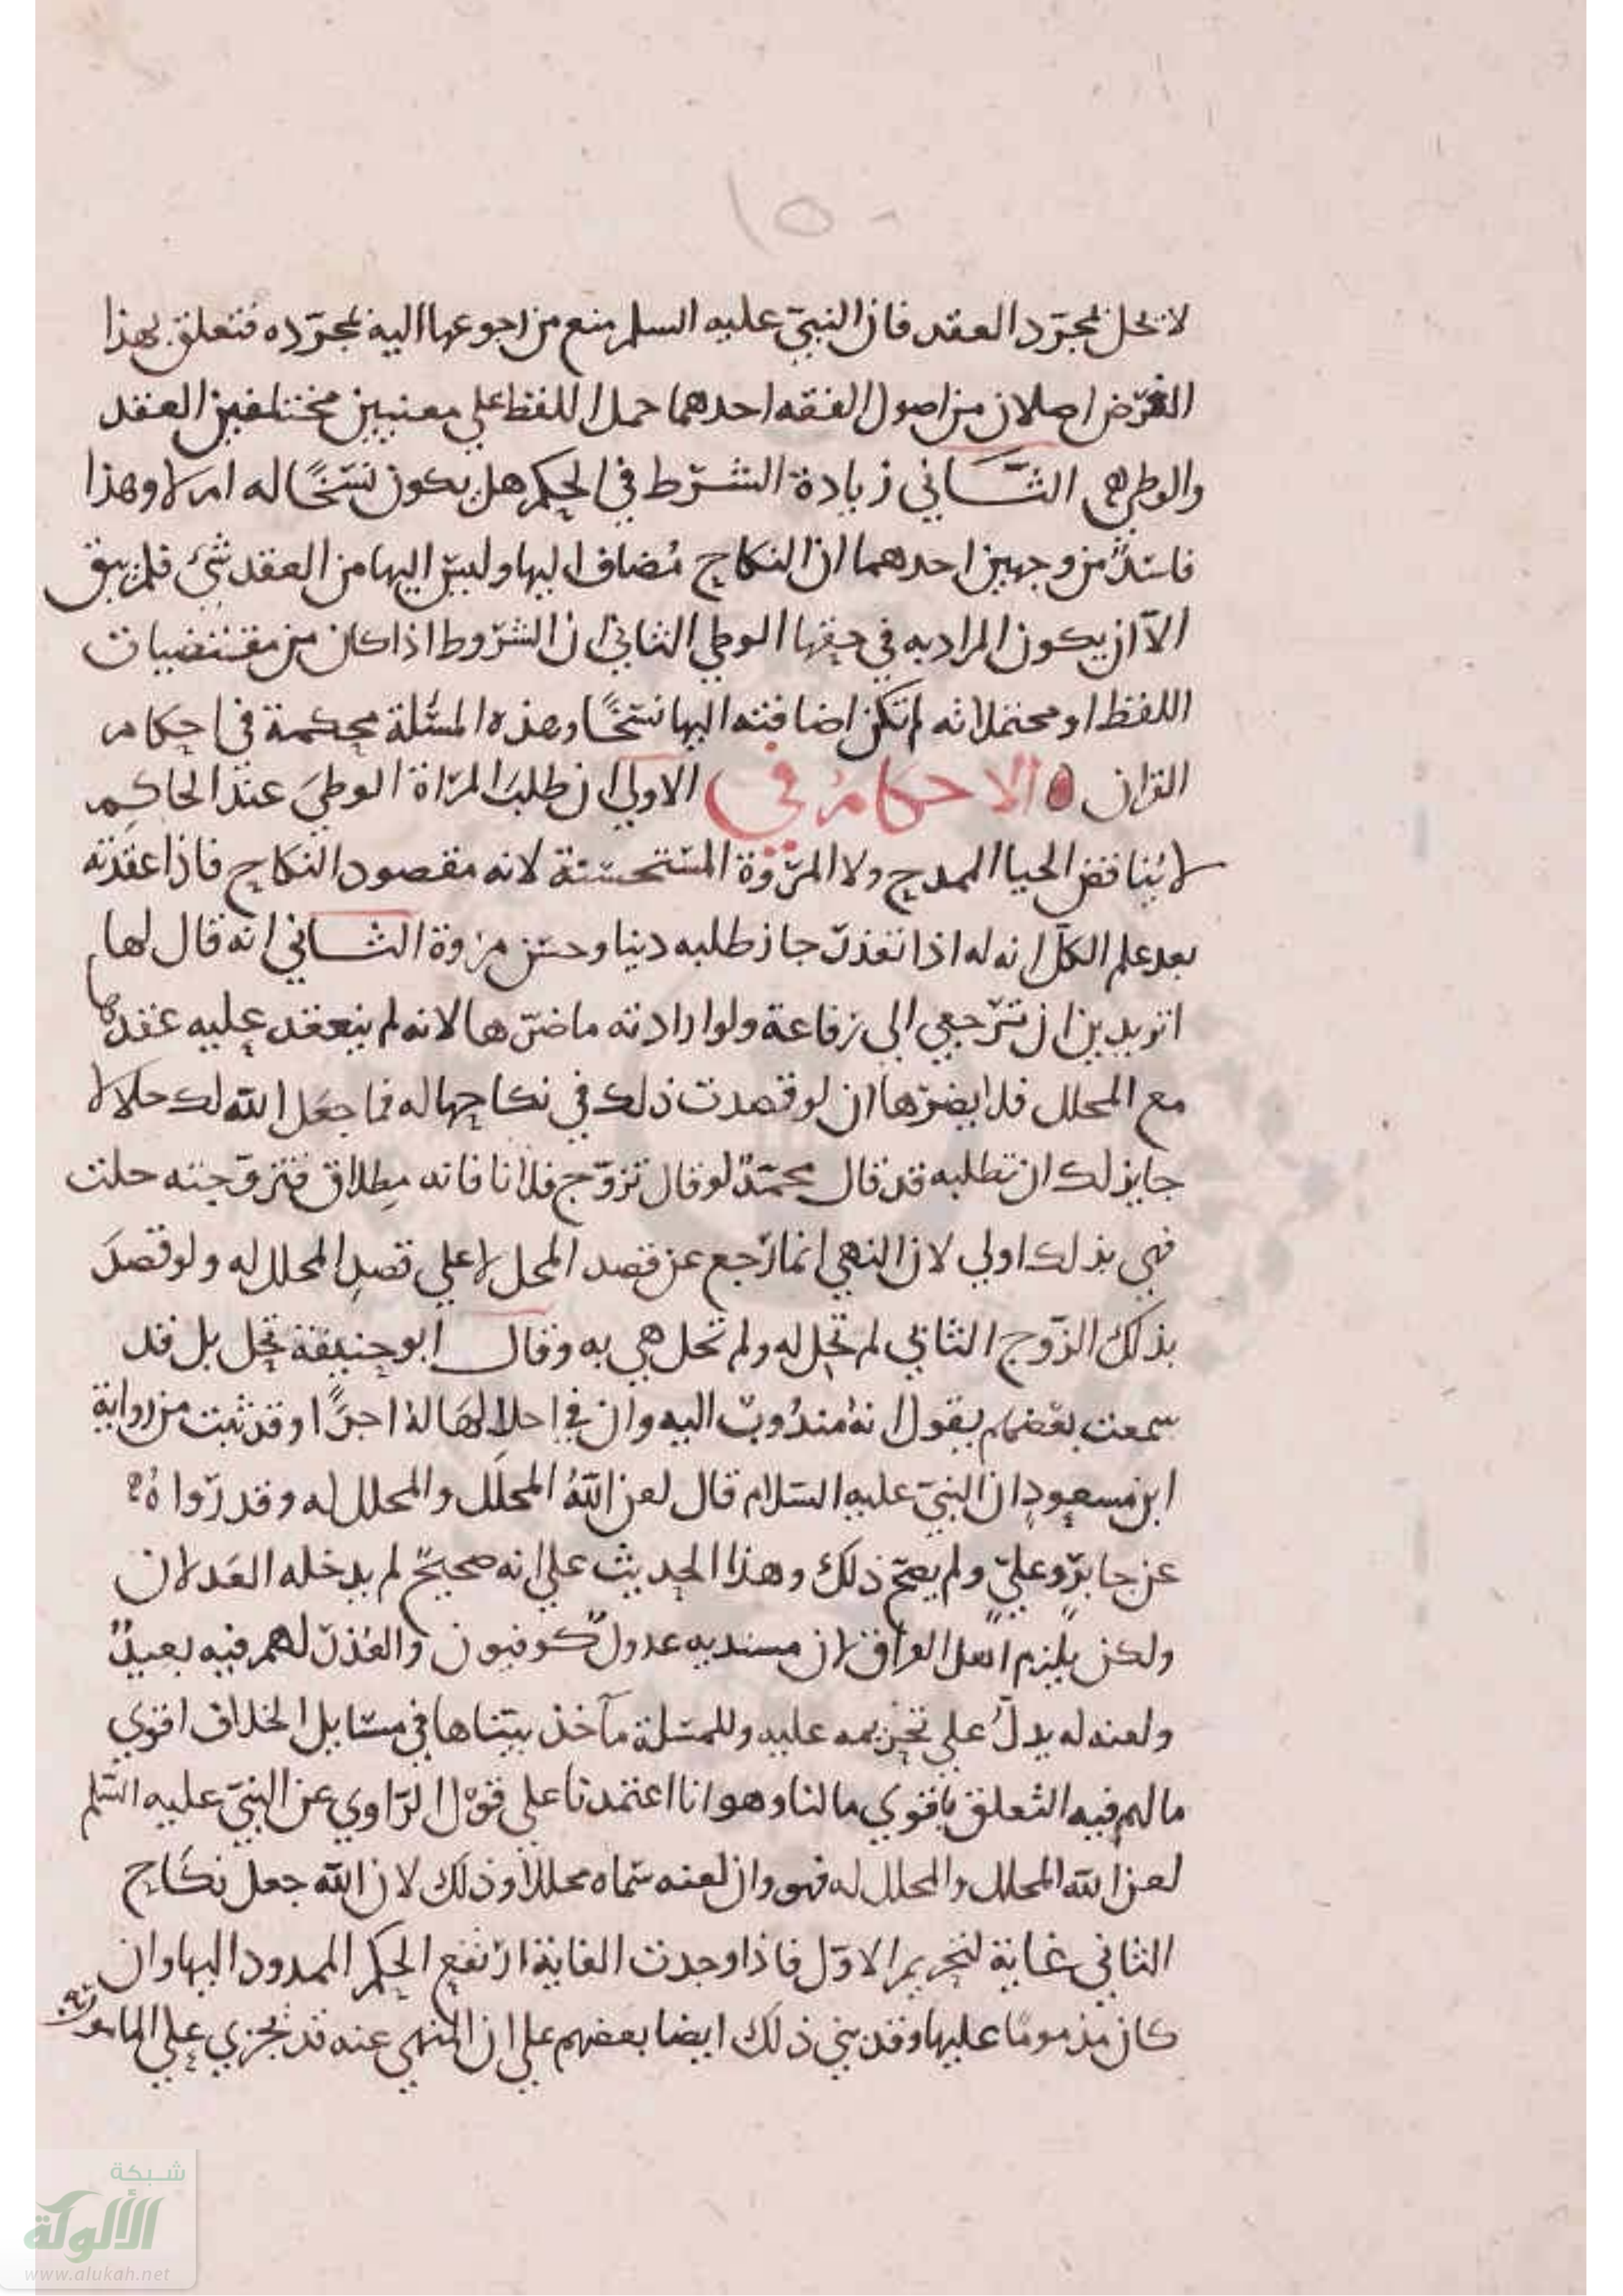 ١٥٠
لا تحل بمجرد العقد فان النبي عليه السلم منع من رجوعها اليه بمجرده فتعلق بهذا
الغرض اصلان من اصول الفقه احدهما حمل اللفظ علي معنيين مختلفين العقد
والوطي الثاني زيادة الشرط في الحكم هل يكون نسخا له ام لا وهذا
فاسد من وجهين احدهما ان النكاح مضاف اليها وليس اليها من العقد شي فلم يبق
الا ان يكون المراد به في حقها الوطي الثاني ان الشروط اذا كان من مقتضيات
اللفظ او محتملاته لم تكن اضافته اليها نسخا وهذه المسئلة محكمة في احكام
القران الاحكام في الاولي ان طلب المراة الوطي عند الحاكم
لا يناقض الحيا الممدوح ولا المروة المستحسنة لانه مقصود النكاح فاذا عقدته
بعد علم الكل انه له اذا تعذر جاز طلبه دينا وحسن مروة الثاني انه قال لها
اتريدين ان ترجعي الى رفاعة ولو ارادته ما ضرها لانه لم ينعقد عليه عقدها
مع المحلل فلا يضرها ان لو قصدت ذلك في نكاحها له فما جعل الله لك حلالا
جايز لك ان تطلبه قد قال محمد لو قال تزوج فلانا فانه مطلاق فتزوجته حلت
فهي بذلك اولي لان النهي انما رجع عن قصد المحل لا علي قصد المحلل له ولو قصد
بذلك الزوج الثاني لم تحل له ولم تحل هي به وقال ابو حنيفة تحل بل قد
سمعت بعضهم يقول انه مندوب اليه وان في احلالها له اجرا وقد ثبت من رواية
ابن مسعود ان النبي عليه السلام قال لعن الله المحلل والمحلل له وقد رواه
عن جابر وعلي ولم يصح ذلك وهذا الحديث علي انه صحيح لم يدخله العدلان
ولكن يلزم اهل العراق لان مسنديه عدول كوفيون والعذر لهم فيه بعيد
ولعنه له يدل علي تحريمه عليه وللمسئلة مآخذ بيناها في مسايل الخلاف اقوي
ما لهم فيه التعلق باقوي ما لنا وهو انا اعتمدنا علي قول الراوي عن النبي عليه السلم
لعن الله المحلل والمحلل له فهو وان لعنه سماه محللا وذلك لان الله جعل نكاح
الثاني غاية لتحريم الاول فاذا وجدت الغاية ارتفع الحكم الممدود اليها وان
كان مذموما عليها وقد بني ذلك ايضا بعضهم علي ان المنهي عنه قد يجزي علي المامور به
شبكة
الألوكة
www.alukah.net